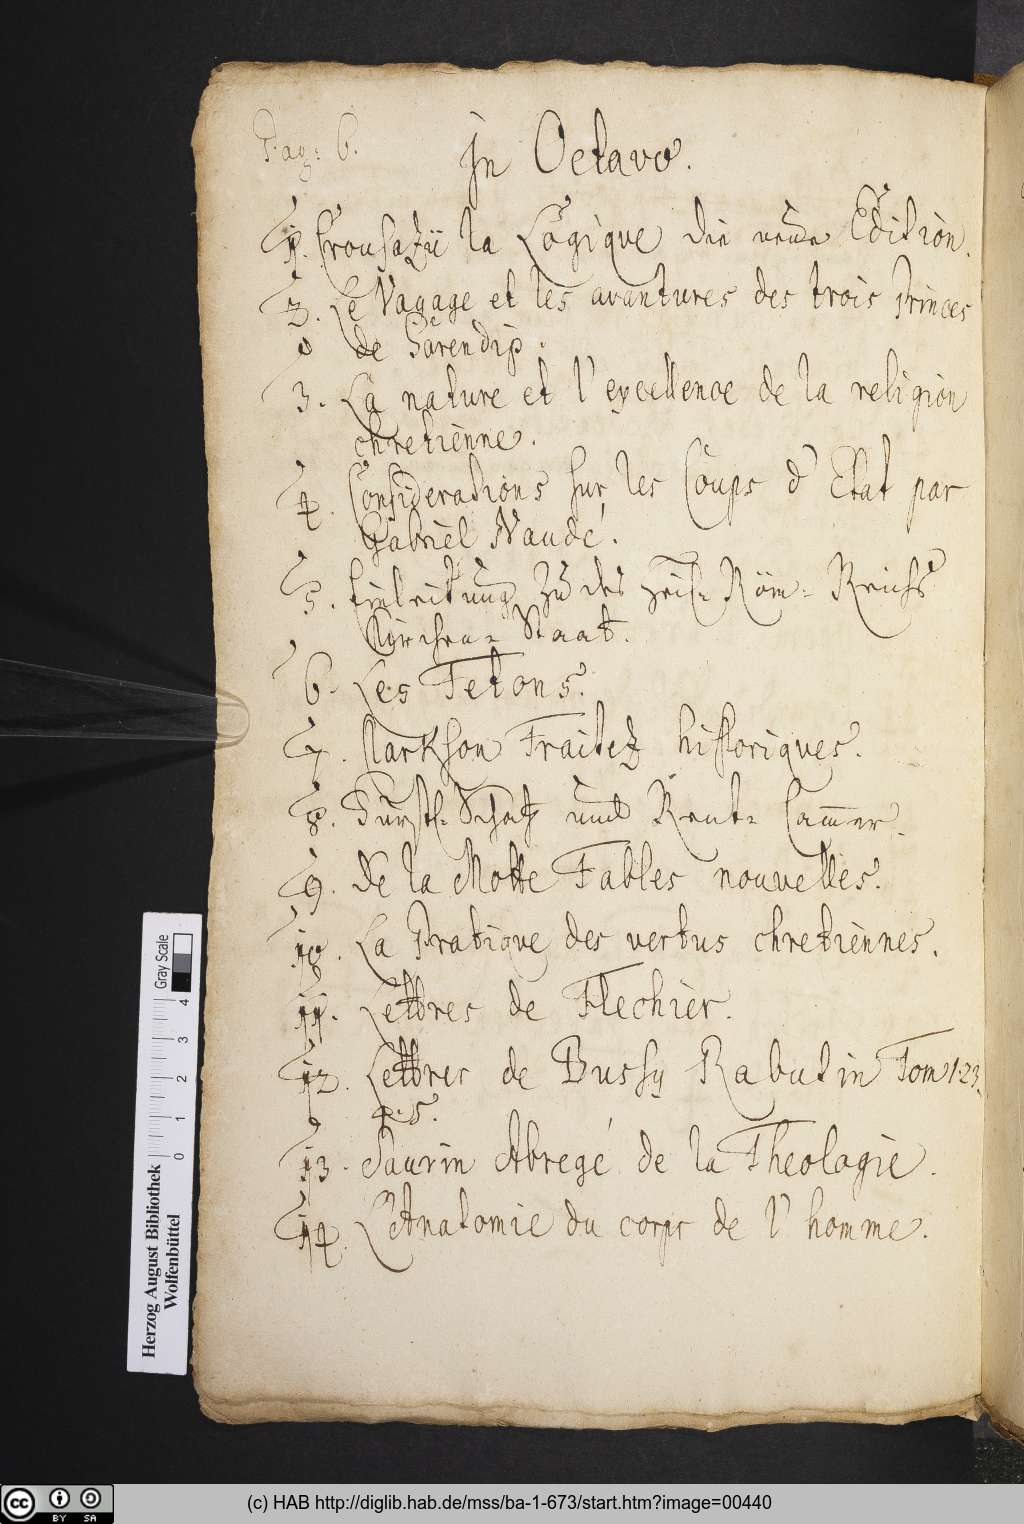 Pag: 6.
In Octavo.
1. Crousazii la Logique die neue Edition.
2. Le Vayage et les avantures des trois Princes
de Sarendip.
3. La nature et l'excellence de la religion
chretienne.
4. Considerations sur les Coups d'Etat par
Gabriel Naudé.
5. Einleitung zu des Heil: Röm: Reichs
Kirchen-Staat.
6. Les Tetons.
7. Traitez historiques.
8. Fürstl. Schatz und Rent-Cammer.
9. de la Motte Fables nouvelles.
10. La Pratique des vertus chretiennes.
11. Lettres de Flechier.
12. Lettres de Bussy Rabutin Tom 1.2.3.
4.5.
13. Saurin Abregé de la Theologie.
14. L'Anatomie du corps de l'homme.
Gray Scale
0 1 2 3 4
Herzog August Bibliothek
Wolfenbüttel
cc BY SA
(c) HAB http://diglib.hab.de/mss/ba-1-673/start.htm?image=00440